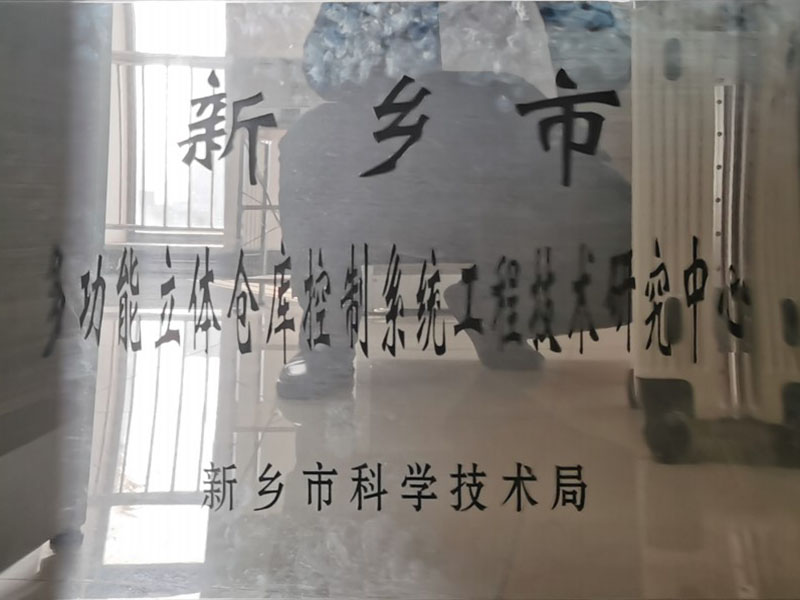 新乡市
多功能立体仓库控制系统工程技术研究中心
新乡市科学技术局